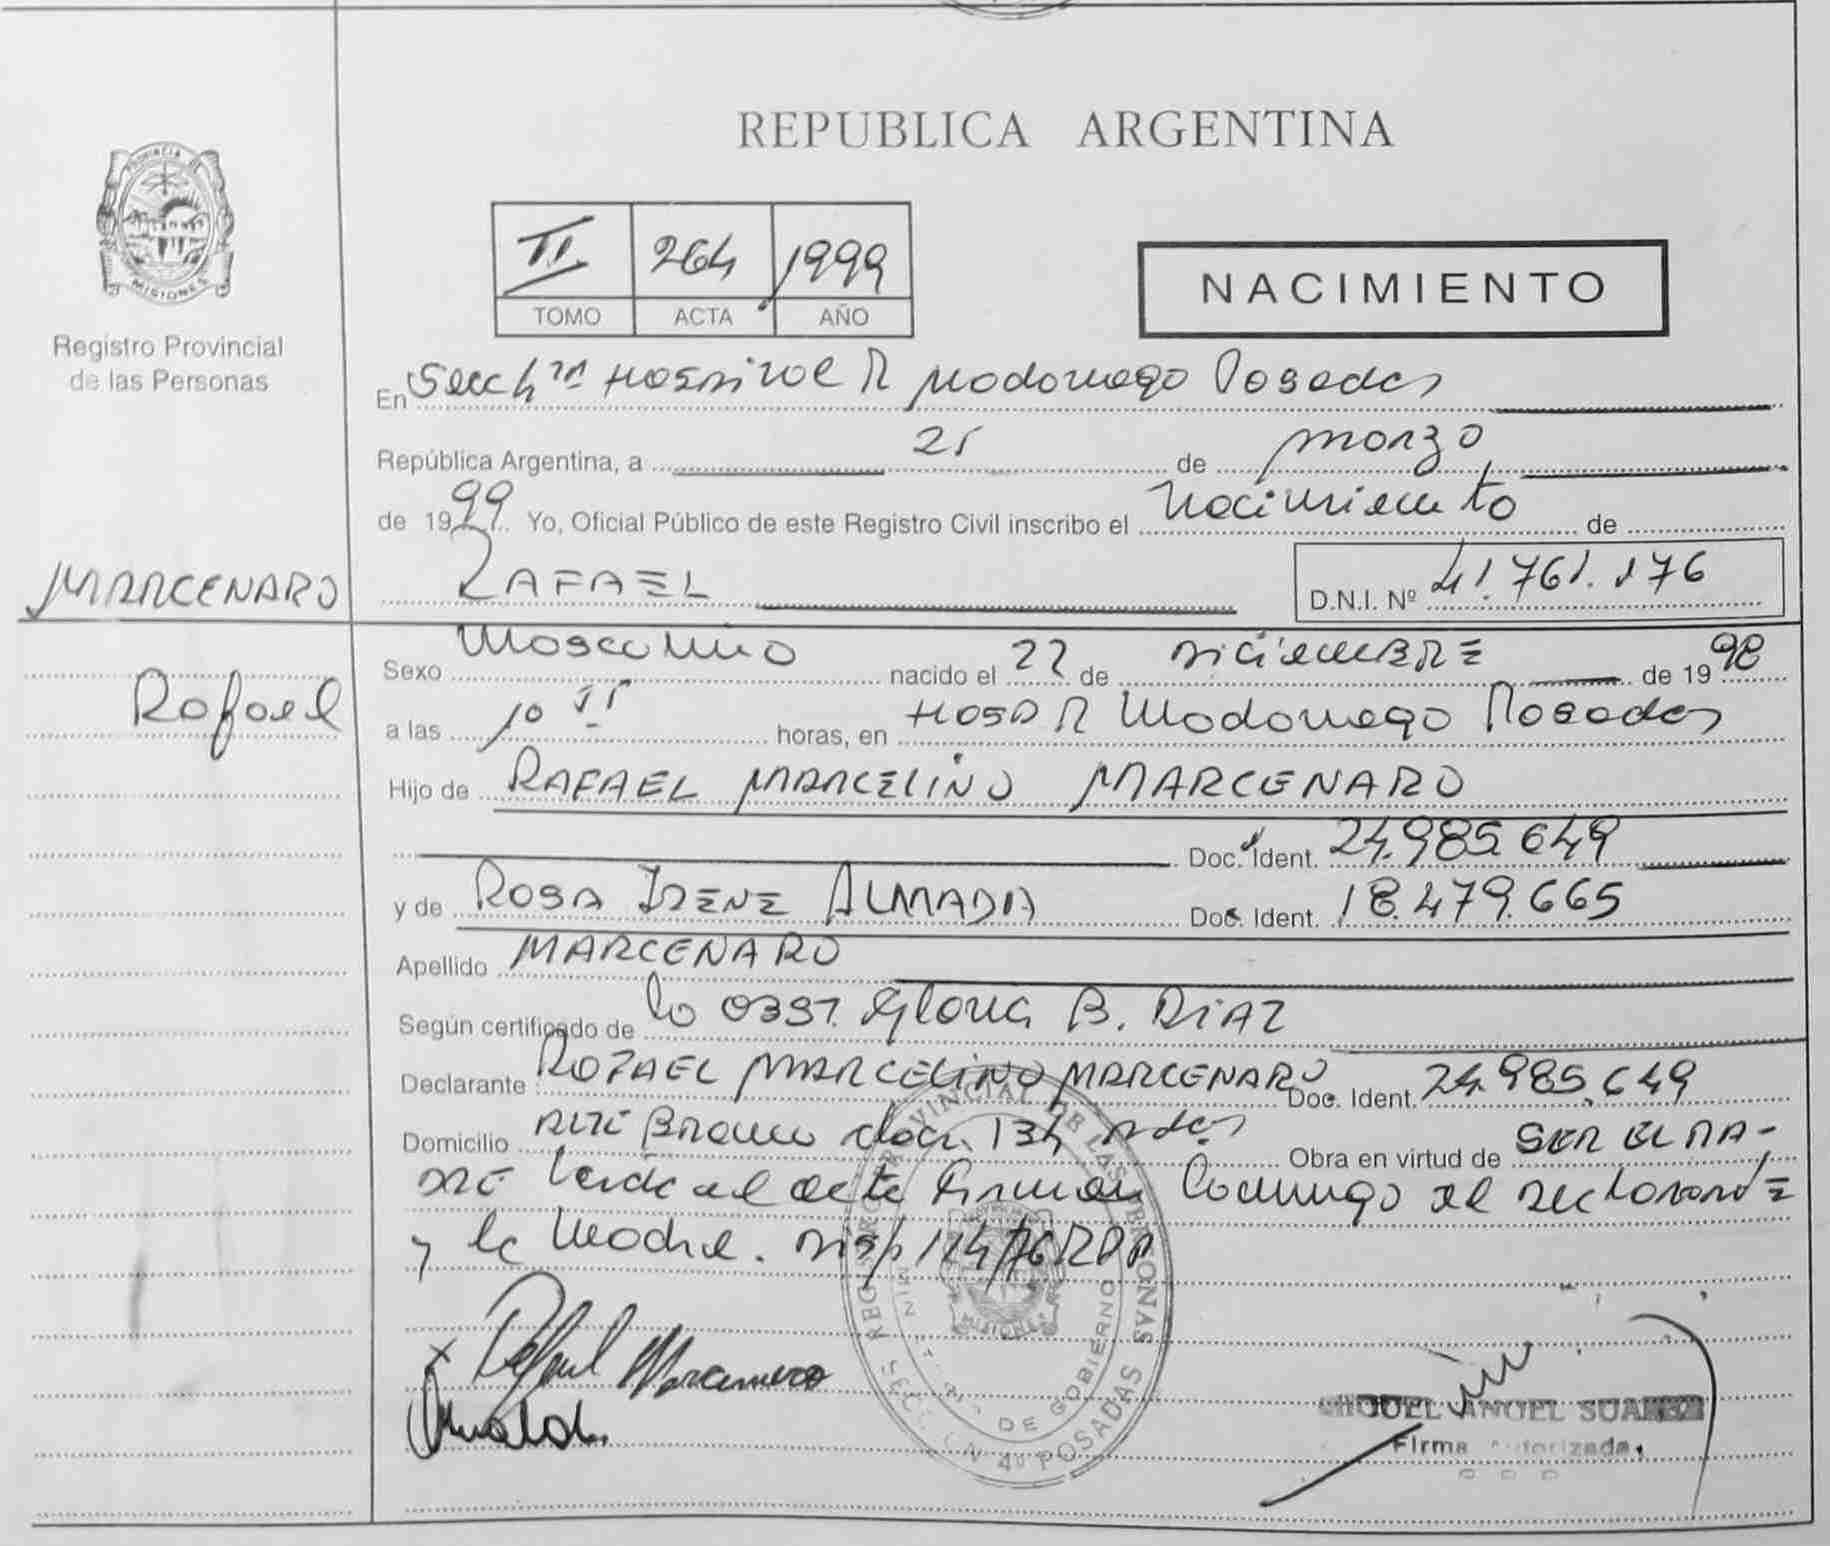 REPUBLICA ARGENTINA
PROVINCIA DE
MISIONES
Registro Provincial
de las Personas
II 264 1999
TOMO ACTA AÑO
NACIMIENTO
En Secc 4ta Hospital R Madariaga Posadas
República Argentina, a 25 de marzo
de 1999 Yo, Oficial Público de este Registro Civil inscribo el Nacimiento de
MARCENARO
RAFAEL D.N.I. Nº 41.761.176
Rafael
Sexo Masculino nacido el 22 de DiciemBRE de 1998
a las 10 horas, en HOSP R Madariaga Posadas
Hijo de RAFAEL MARCELINO MARCENARO
Doc. Ident. 24.985.649
y de ROSA IRENE ALMADA Doc. Ident. 18.479.665
Apellido MARCENARO
Según certificado de la OBST. Gloria B. DIAZ
Declarante RAFAEL MARCELINO MARCENARO Doc. Ident. 24.985.649
Domicilio Alte Brown 134 Obra en virtud de SER EL PA-
DRE Leída el acta firman conmigo el declarante
y la Madre. Disp 114/76 RPP
REGISTRO PROVINCIAL DE LAS PERSONAS
DE GOBIERNO
MISIONES
SECCION 4º POSADAS
Rafael Marcenaro
MIGUEL ANGEL SUAREZ
Firma Autorizada